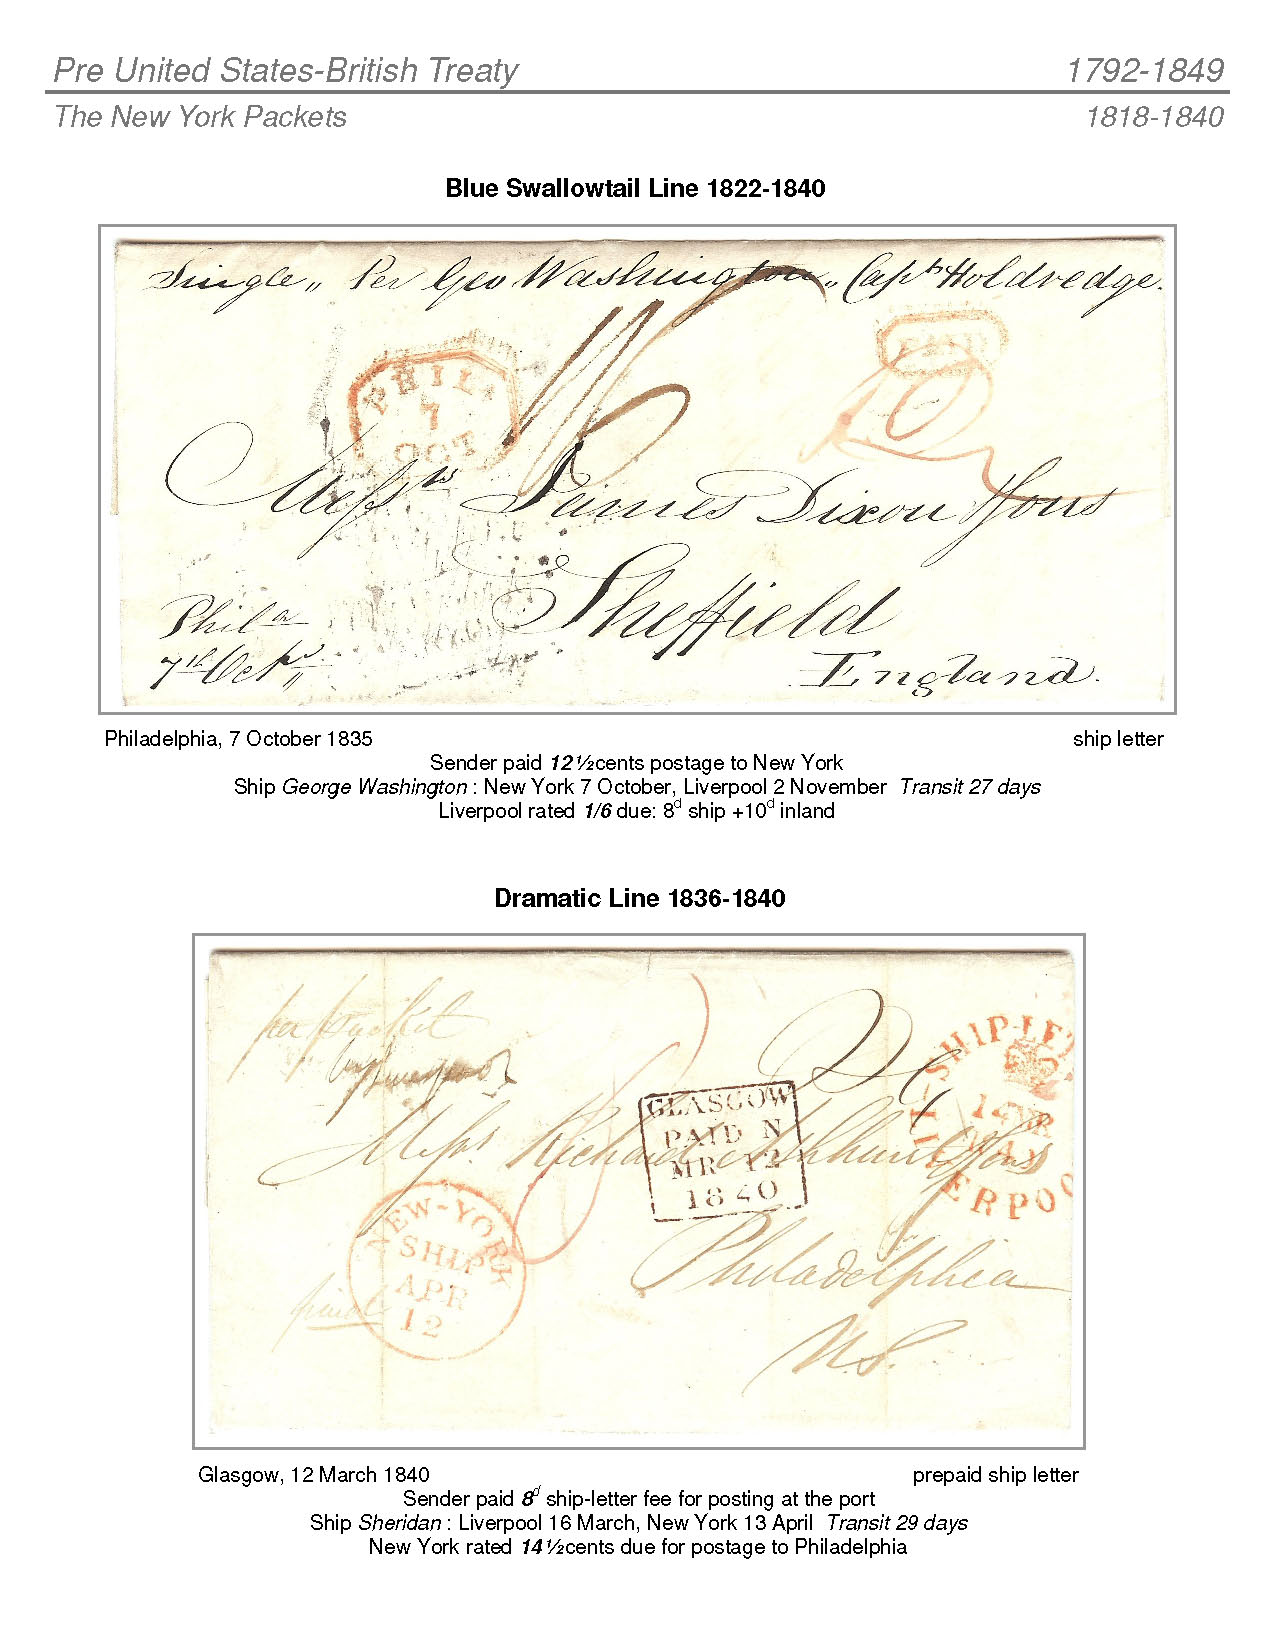 Pre United States-British Treaty 1792-1849
The New York Packets 1818-1840
Blue Swallowtail Line 1822-1840
Single „ Per Geo Washington „ Capt Holdredge.
PHIL.
7
OCT
PAID
Messrs James Dixon & Sons
Sheffield
England.
Phila
7th Oct
Philadelphia, 7 October 1835 ship letter
Sender paid 12½cents postage to New York
Ship George Washington : New York 7 October, Liverpool 2 November Transit 27 days
Liverpool rated 1/6 due: 8d ship +10d inland
Dramatic Line 1836-1840
per packet
GLASGOW
PAID N
MR 12
1840
SHIP-LET
ERPOO
Messrs Richard & Sons
NEW-YORK
SHIP
APR
12
paid
Philadelphia
U.S.
Glasgow, 12 March 1840 prepaid ship letter
Sender paid 8d ship-letter fee for posting at the port
Ship Sheridan : Liverpool 16 March, New York 13 April Transit 29 days
New York rated 14½cents due for postage to Philadelphia